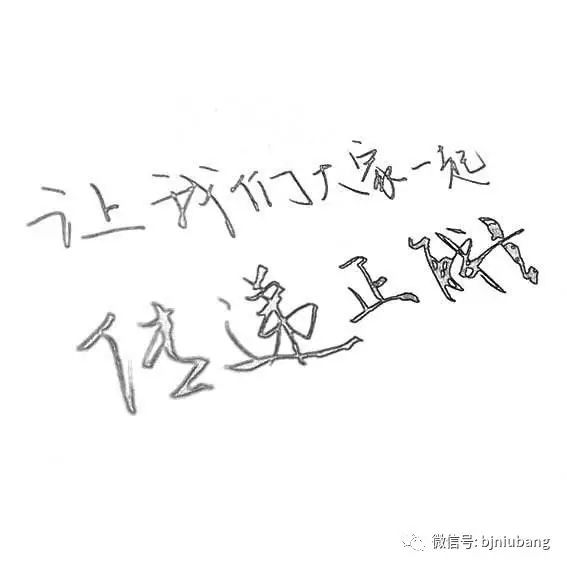 让我们大家一起
传递正能
微信号: bjniubang